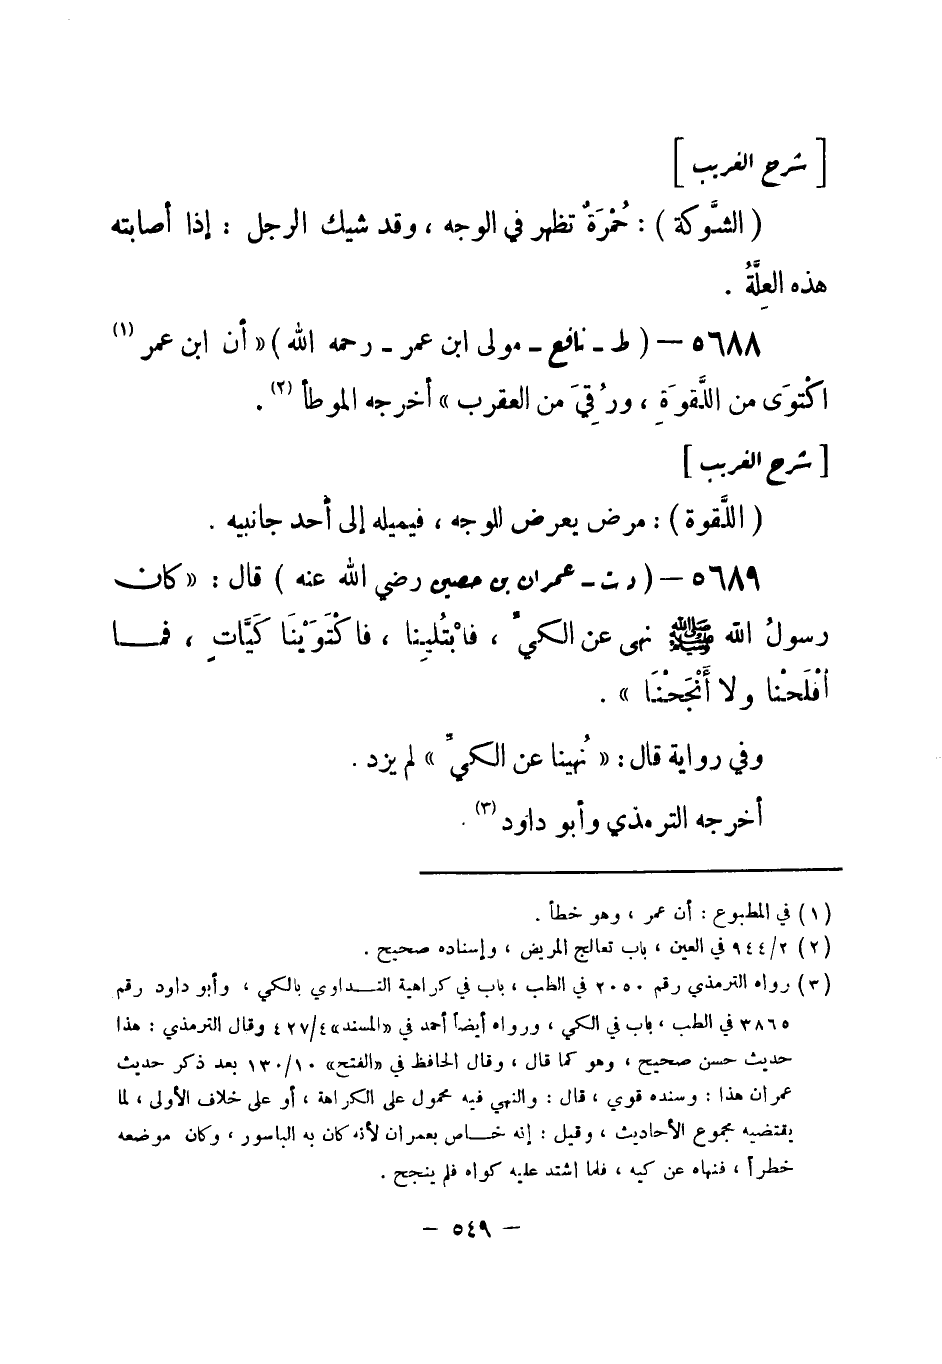 [ شرح الغريب ]
( الشَّوكة ) : حُمْرَةٌ تظهر في الوجه ، وقد شيك الرجل : إذا أصابته
هذه العِلَّةُ .
٥٦٨٨ – ( ط ـ نافع ـ مولى ابن عمر ـ رحمه الله ) « أن ابن عمر (١)
اكْتوَى من اللَّقوَةِ ، ورُقِيَ من العقرب » أخرجه الموطأ (٢) .
[ شرح الغريب ]
( اللَّقوة ) : مرض يعرض للوجه ، فيميله إلى أحد جانبيه .
٥٦٨٩ – ( د ت ـ عمران بن حصين رضي الله عنه ) قال : « كان
رسولُ الله ﷺ نهى عن الكيِّ ، فابْتُلينا ، فاكْتَوَيْنَا كَيَّاتٍ ، فما
أفْلَحْنا ولا أَنْجَحْنَا » .
وفي رواية قال : « نُهينا عن الكيِّ » لم يزد .
أخرجه الترمذي وأبو داود (٣) .
(١) في المطبوع : أن عمر ، وهو خطأ .
(٢) ٩٤٤/٢ في العين ، باب تعالج المريض ، وإسناده صحيح .
(٣) رواه الترمذي رقم ٢٠٥٠ في الطب ، باب في كراهية التداوي بالكي ، وأبو داود رقم
٣٨٦٥ في الطب ، باب في الكي ، ورواه أيضاً أحمد في «المسند» ٤٢٧/٤ وقال الترمذي : هذا
حديث حسن صحيح ، وهو كما قال ، وقال الحافظ في «الفتح» ١٣٠/١٠ بعد ذكر حديث
عمران هذا : وسنده قوي ، قال : والنهي فيه محمول على الكراهة ، أو على خلاف الأولى ، لما
يقتضيه مجموع الأحاديث ، وقيل : إنه خاص بعمران لأنه كان به الباسور ، وكان موضعه
خطراً ، فنهاه عن كيه ، فلما اشتد عليه كواه فلم ينجح .
– ٥٤٩ –